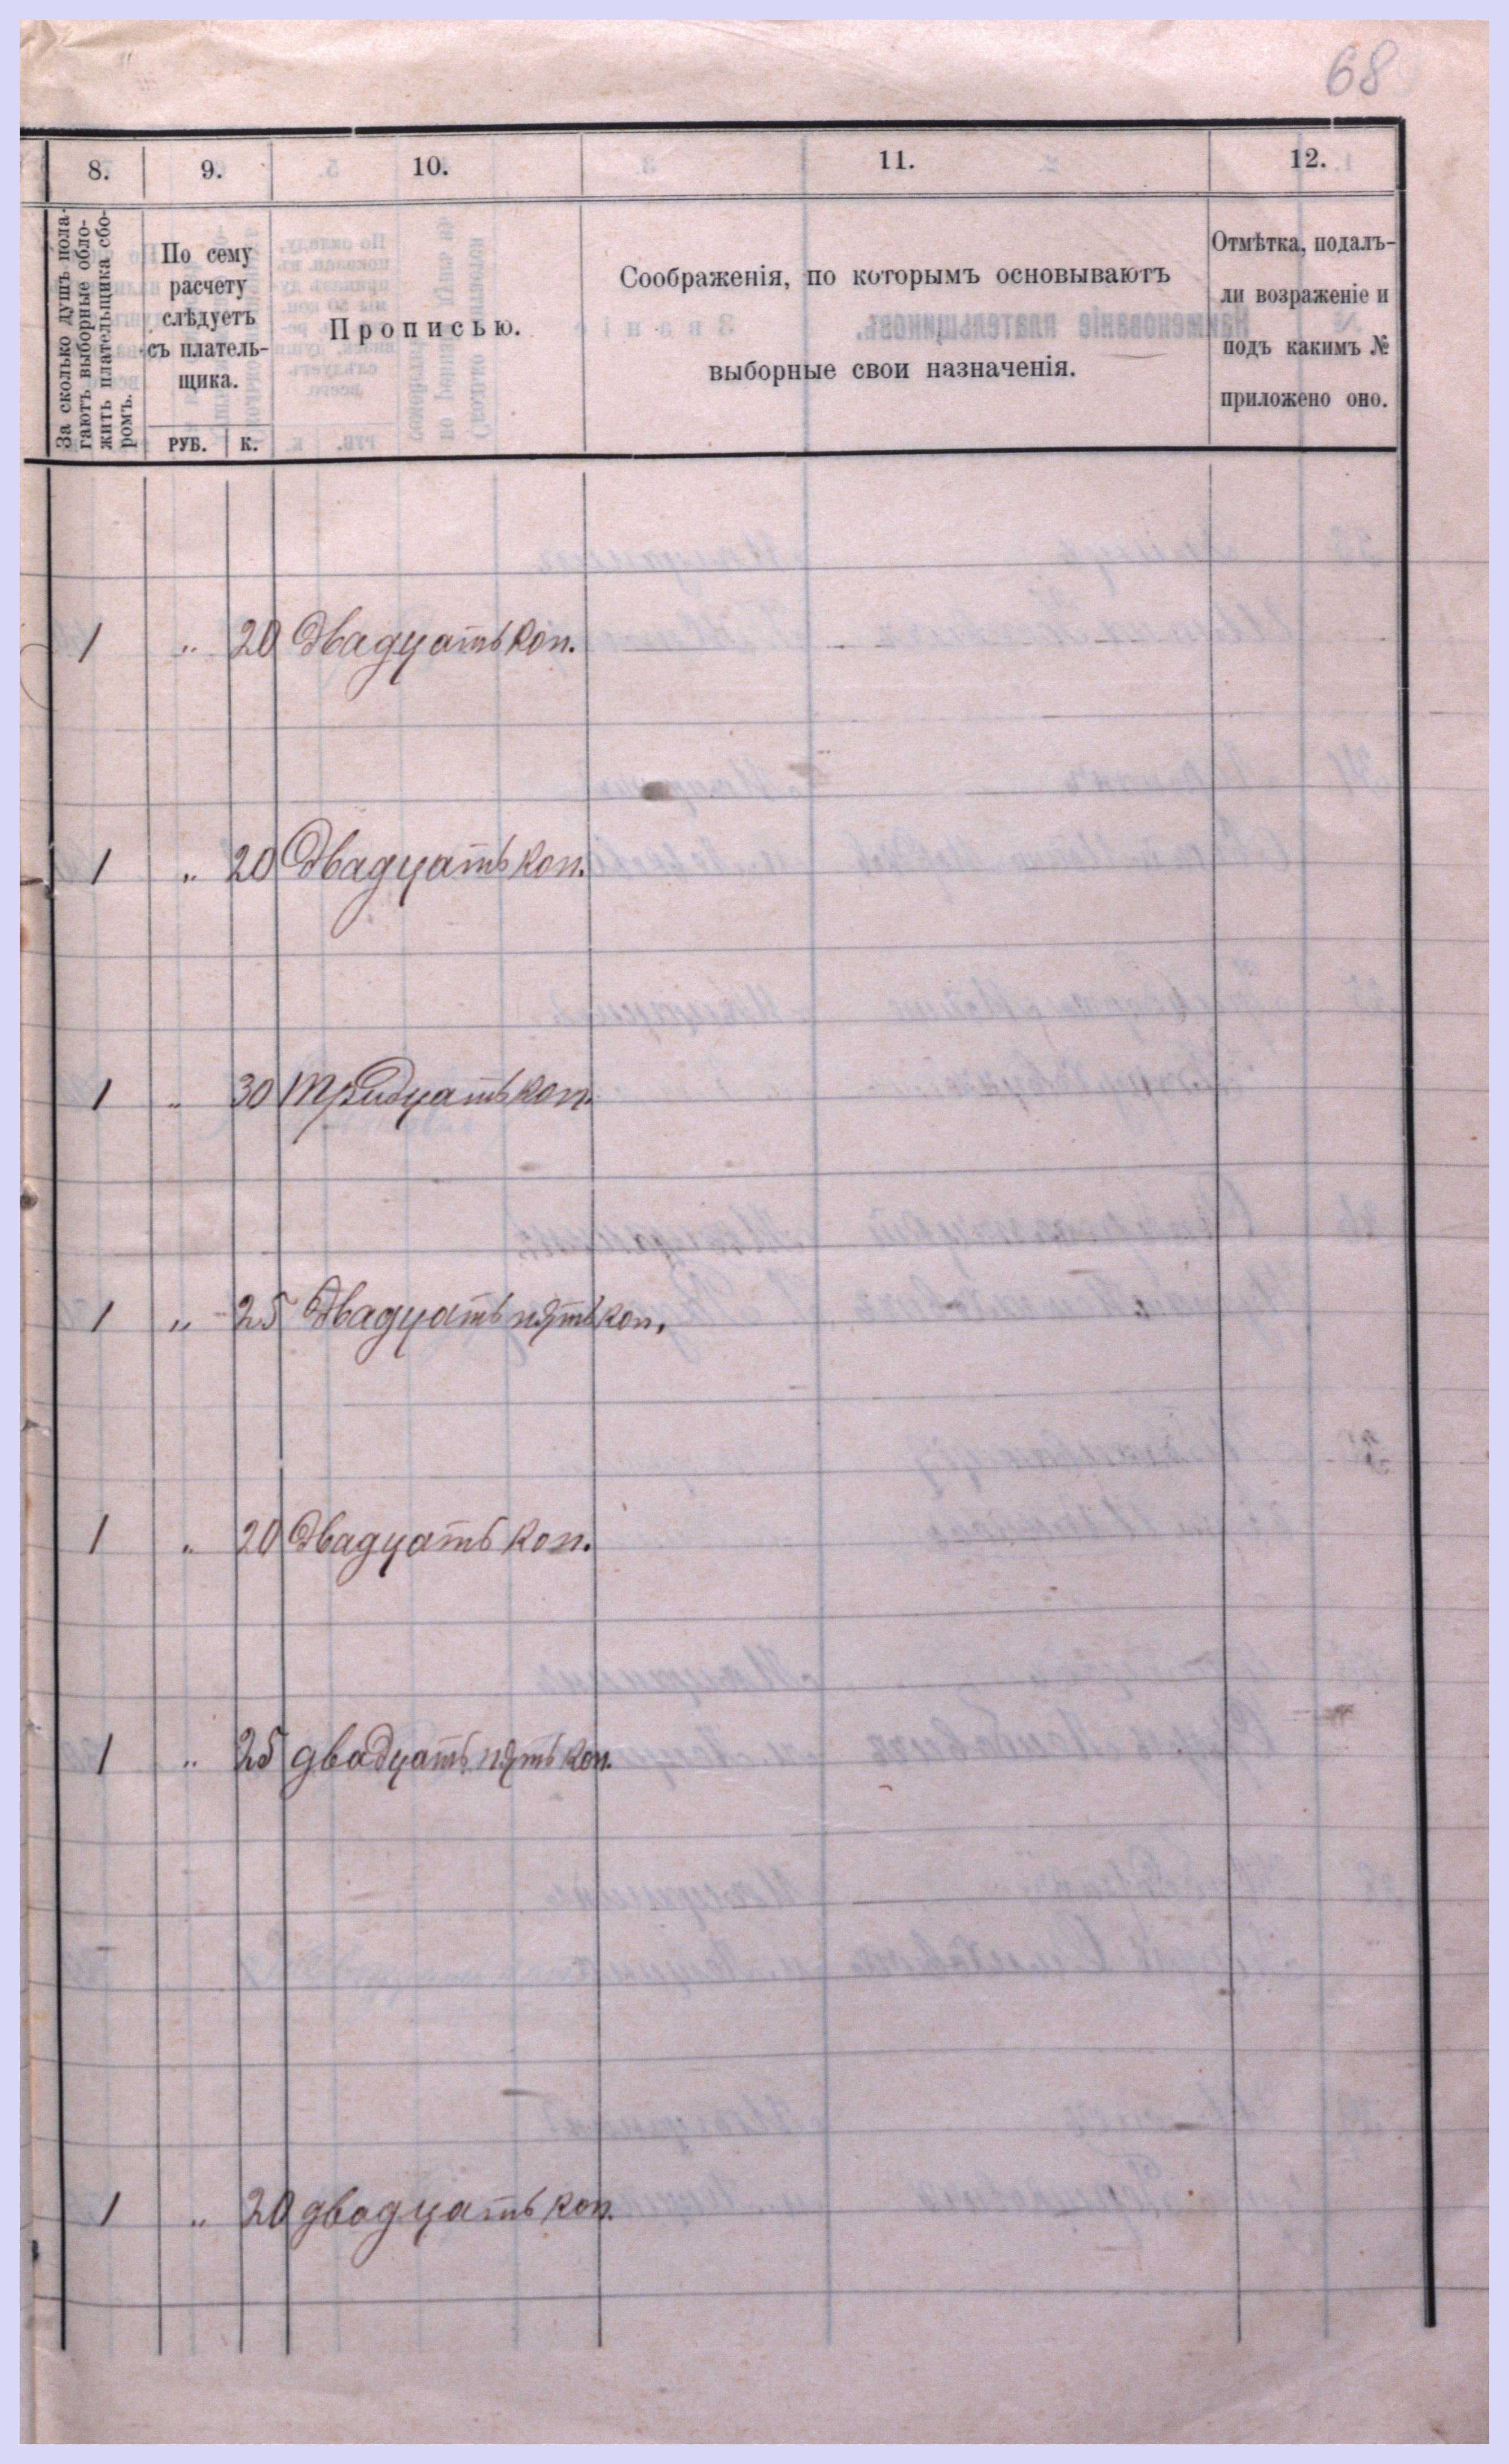 68
8. 9. 10. 11. 12.
За сколько душъ пола-
гаютъ выборные обло-
жить плательщика сбо-
ромъ.
По сему
расчету
слѣдуетъ
съ платель-
щика.
РУБ. К.
Прописью.
Соображенія, по которымъ основываютъ
выборные свои назначенія.
Отмѣтка, подалъ-
ли возраженіе и
подъ какимъ №
приложено оно.
1 „ 20 Двадцать коп.
1 „ 20 Двадцать коп.
1 „ 30 Тридцать коп.
1 „ 25 Двадцать пять коп.
1 „ 20 Двадцать коп.
1 „ 25 двадцать пять коп.
1 „ 20 двадцать коп.